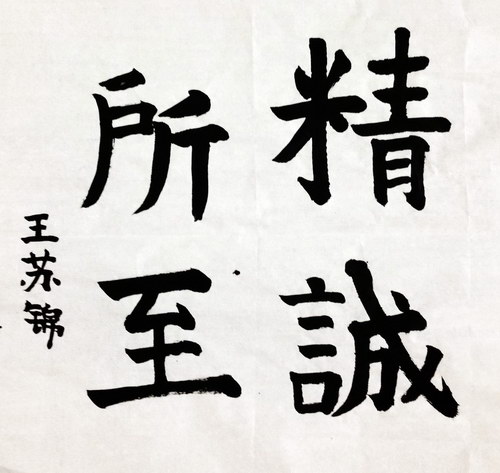 精誠
所至
王苏锦